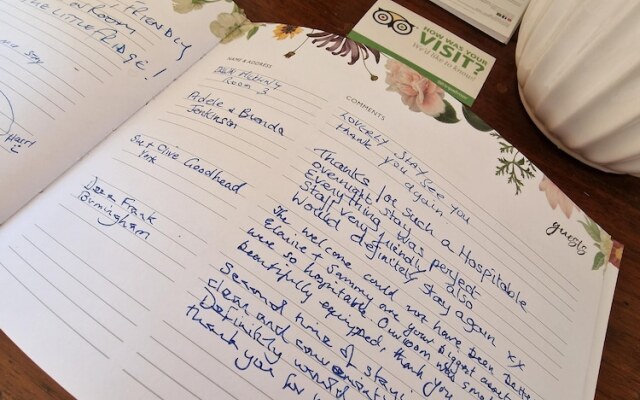 FRIENDLY
ROOM
THE LITTLE FRIDGE!
HOW WAS YOUR
VISIT?
We'd like to know!
NAME & ADDRESS
COMMENTS
guests
Room 3
LOVERLY STAY SEE YOU
thank you again
Adele & Brenda
Jenkinson
Thanks for such a Hospitable
overnight stay.
Everything was perfect
Staff very friendly also
Would definitely stay again xx
Clive Goodhead
York
The welcome could not have been better
Elaine & Sammy are your biggest assets
were so hospitable Our room was small
beautifully equipped, thank you
Frank
Birmingham
Second time of stay
clean and convenient
Definitely would
thank you for